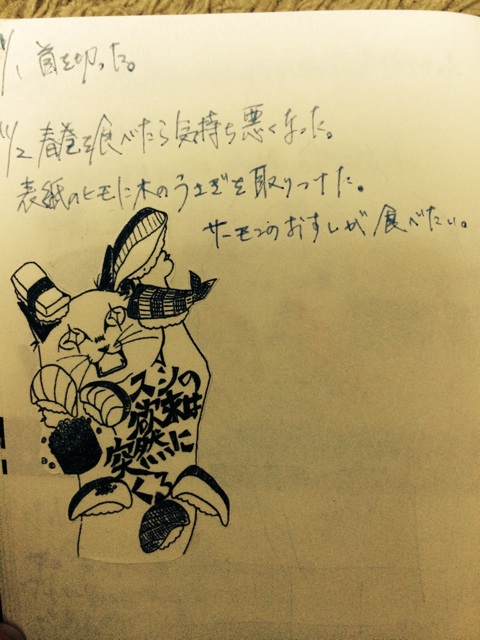 /1 首を切った。
11/2 春巻を食べたら気持ち悪くなった。
表紙のヒモに木のうさぎを取りつけた。
サーモンのおすしが食べたい。
スシの
欲求は
突然に
くる